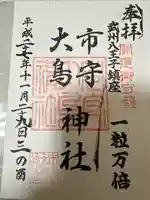 奉拝
武州八王子鎮座
一粒万倍
市守
大鳥
神社
平成二十七年十一月二十九日三の酉